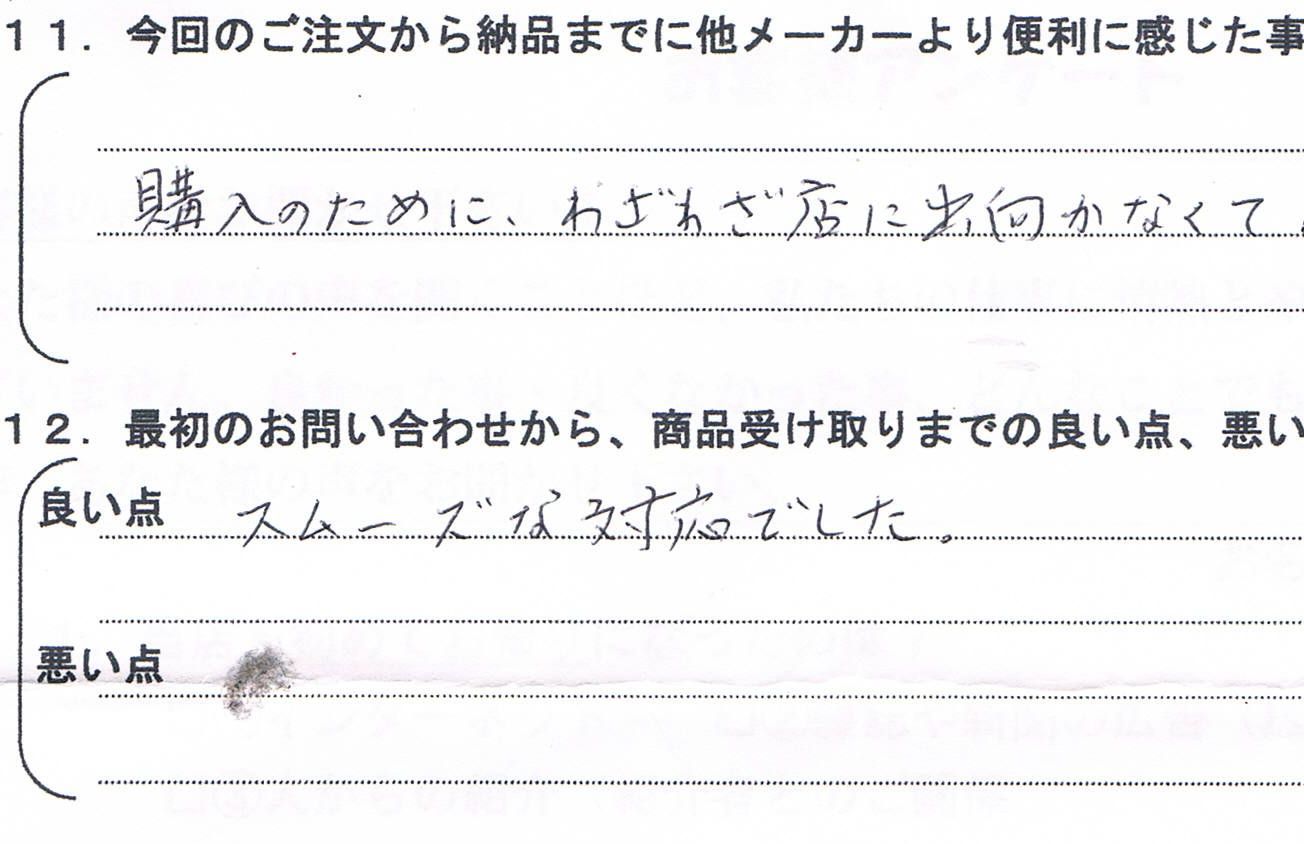 １１．今回のご注文から納品までに他メーカーより便利に感じた事
購入のために、わざわざ店に出向かなくて
１２．最初のお問い合わせから、商品受け取りまでの良い点、悪い
良い点 スムーズな対応でした。
悪い点